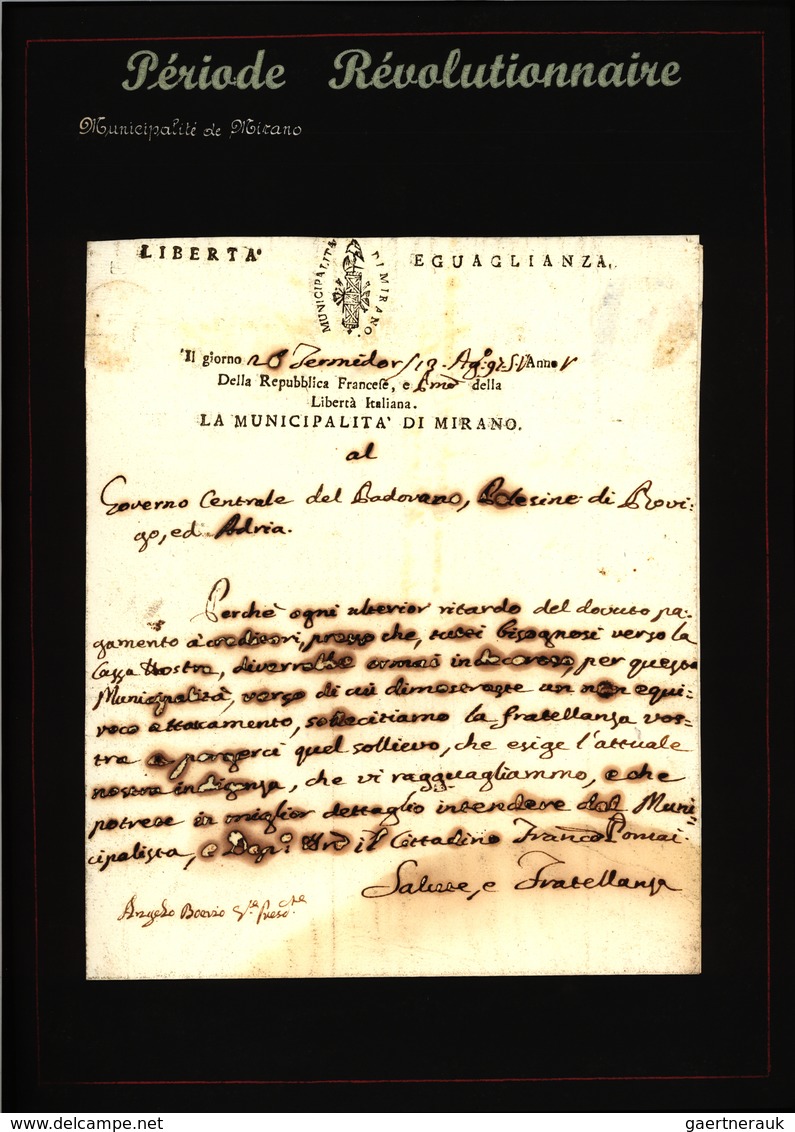 Période Révolutionnaire
Municipalité de Mirano
LIBERTA' EGUAGLIANZA.
MUNICIPALITÀ DI MIRANO.
Il giorno 26 Termidor / 13. Ag.º 97. S.V. Anno V
Della Repubblica Francese, e P.mo della
Libertà Italiana.
LA MUNICIPALITA' DI MIRANO.
al
Governo Centrale del Padovano, Polesine di Rovi-
go, ed Adria.
Perchè ogni ulterior ritardo del dovuto pa-
gamento a' creditori, presso che, tutti bisognosi verso la
Cassa Nostra, diverrebbe ormai indecoroso, per questa
Municipalità, verso di cui dimostraste un non equi-
voco attacamento, sollecitiamo la fratellanza vos-
tra a porgerci quel sollievo, che esige l'attuale
nostra indigenza, che vi ragguagliammo, e che
potrete in miglior dettaglio intendere dal Muni-
cipalista, e Dep.º il Cittadino Franc.º
Salute, e Fratellanza
Angelo
delcampe.net
gaertnerauk